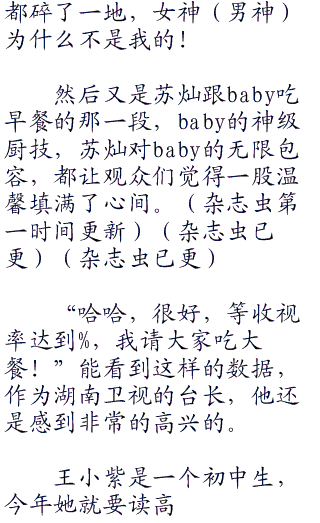 都碎了一地，女神（男神）
为什么不是我的！
然后又是苏灿跟baby吃
早餐的那一段，baby的神级
厨技，苏灿对baby的无限包
容，都让观众们觉得一股温
馨填满了心间。（杂志虫第
一时间更新）（杂志虫已
更）（杂志虫已更）
“哈哈，很好，等收视
率达到%，我请大家吃大
餐！”能看到这样的数据，
作为湖南卫视的台长，他还
是感到非常的高兴的。
王小紫是一个初中生，
今年她就要读高